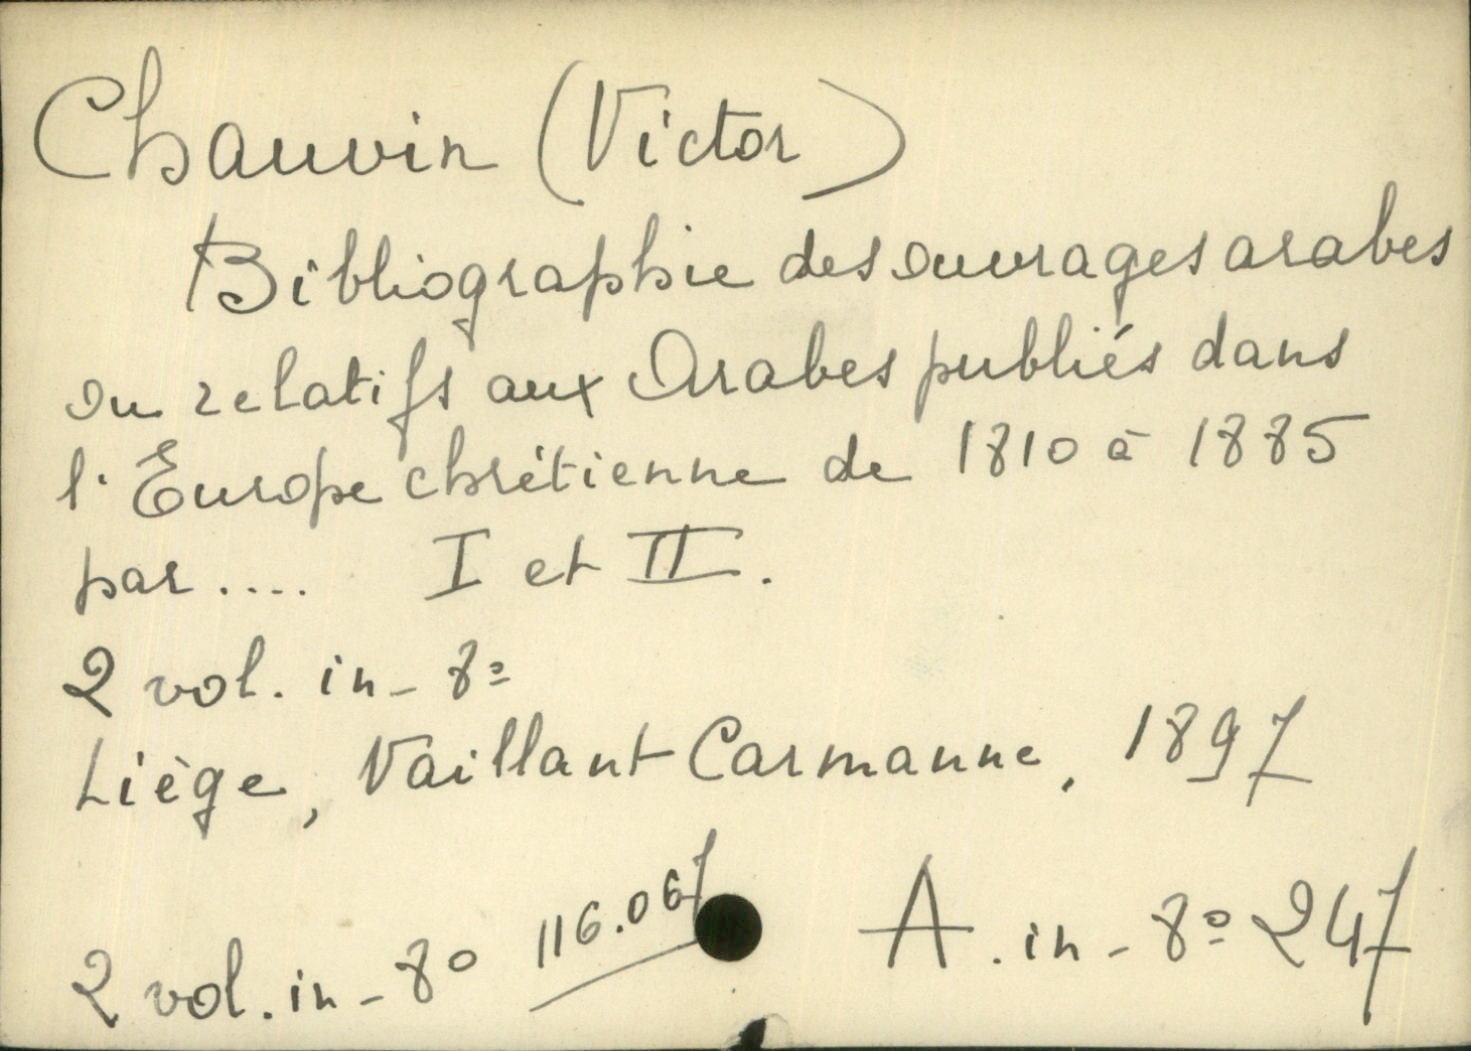 Chauvin (Victor)
Bibliographie des ouvrages arabes
ou relatifs aux Arabes publiés dans
l'Europe chrétienne de 1810 à 1885
par.... I et II.
2 vol. in-8º
Liège, Vaillant Carmanne, 1897
2 vol. in-8º 116.067 A. in-8º 247